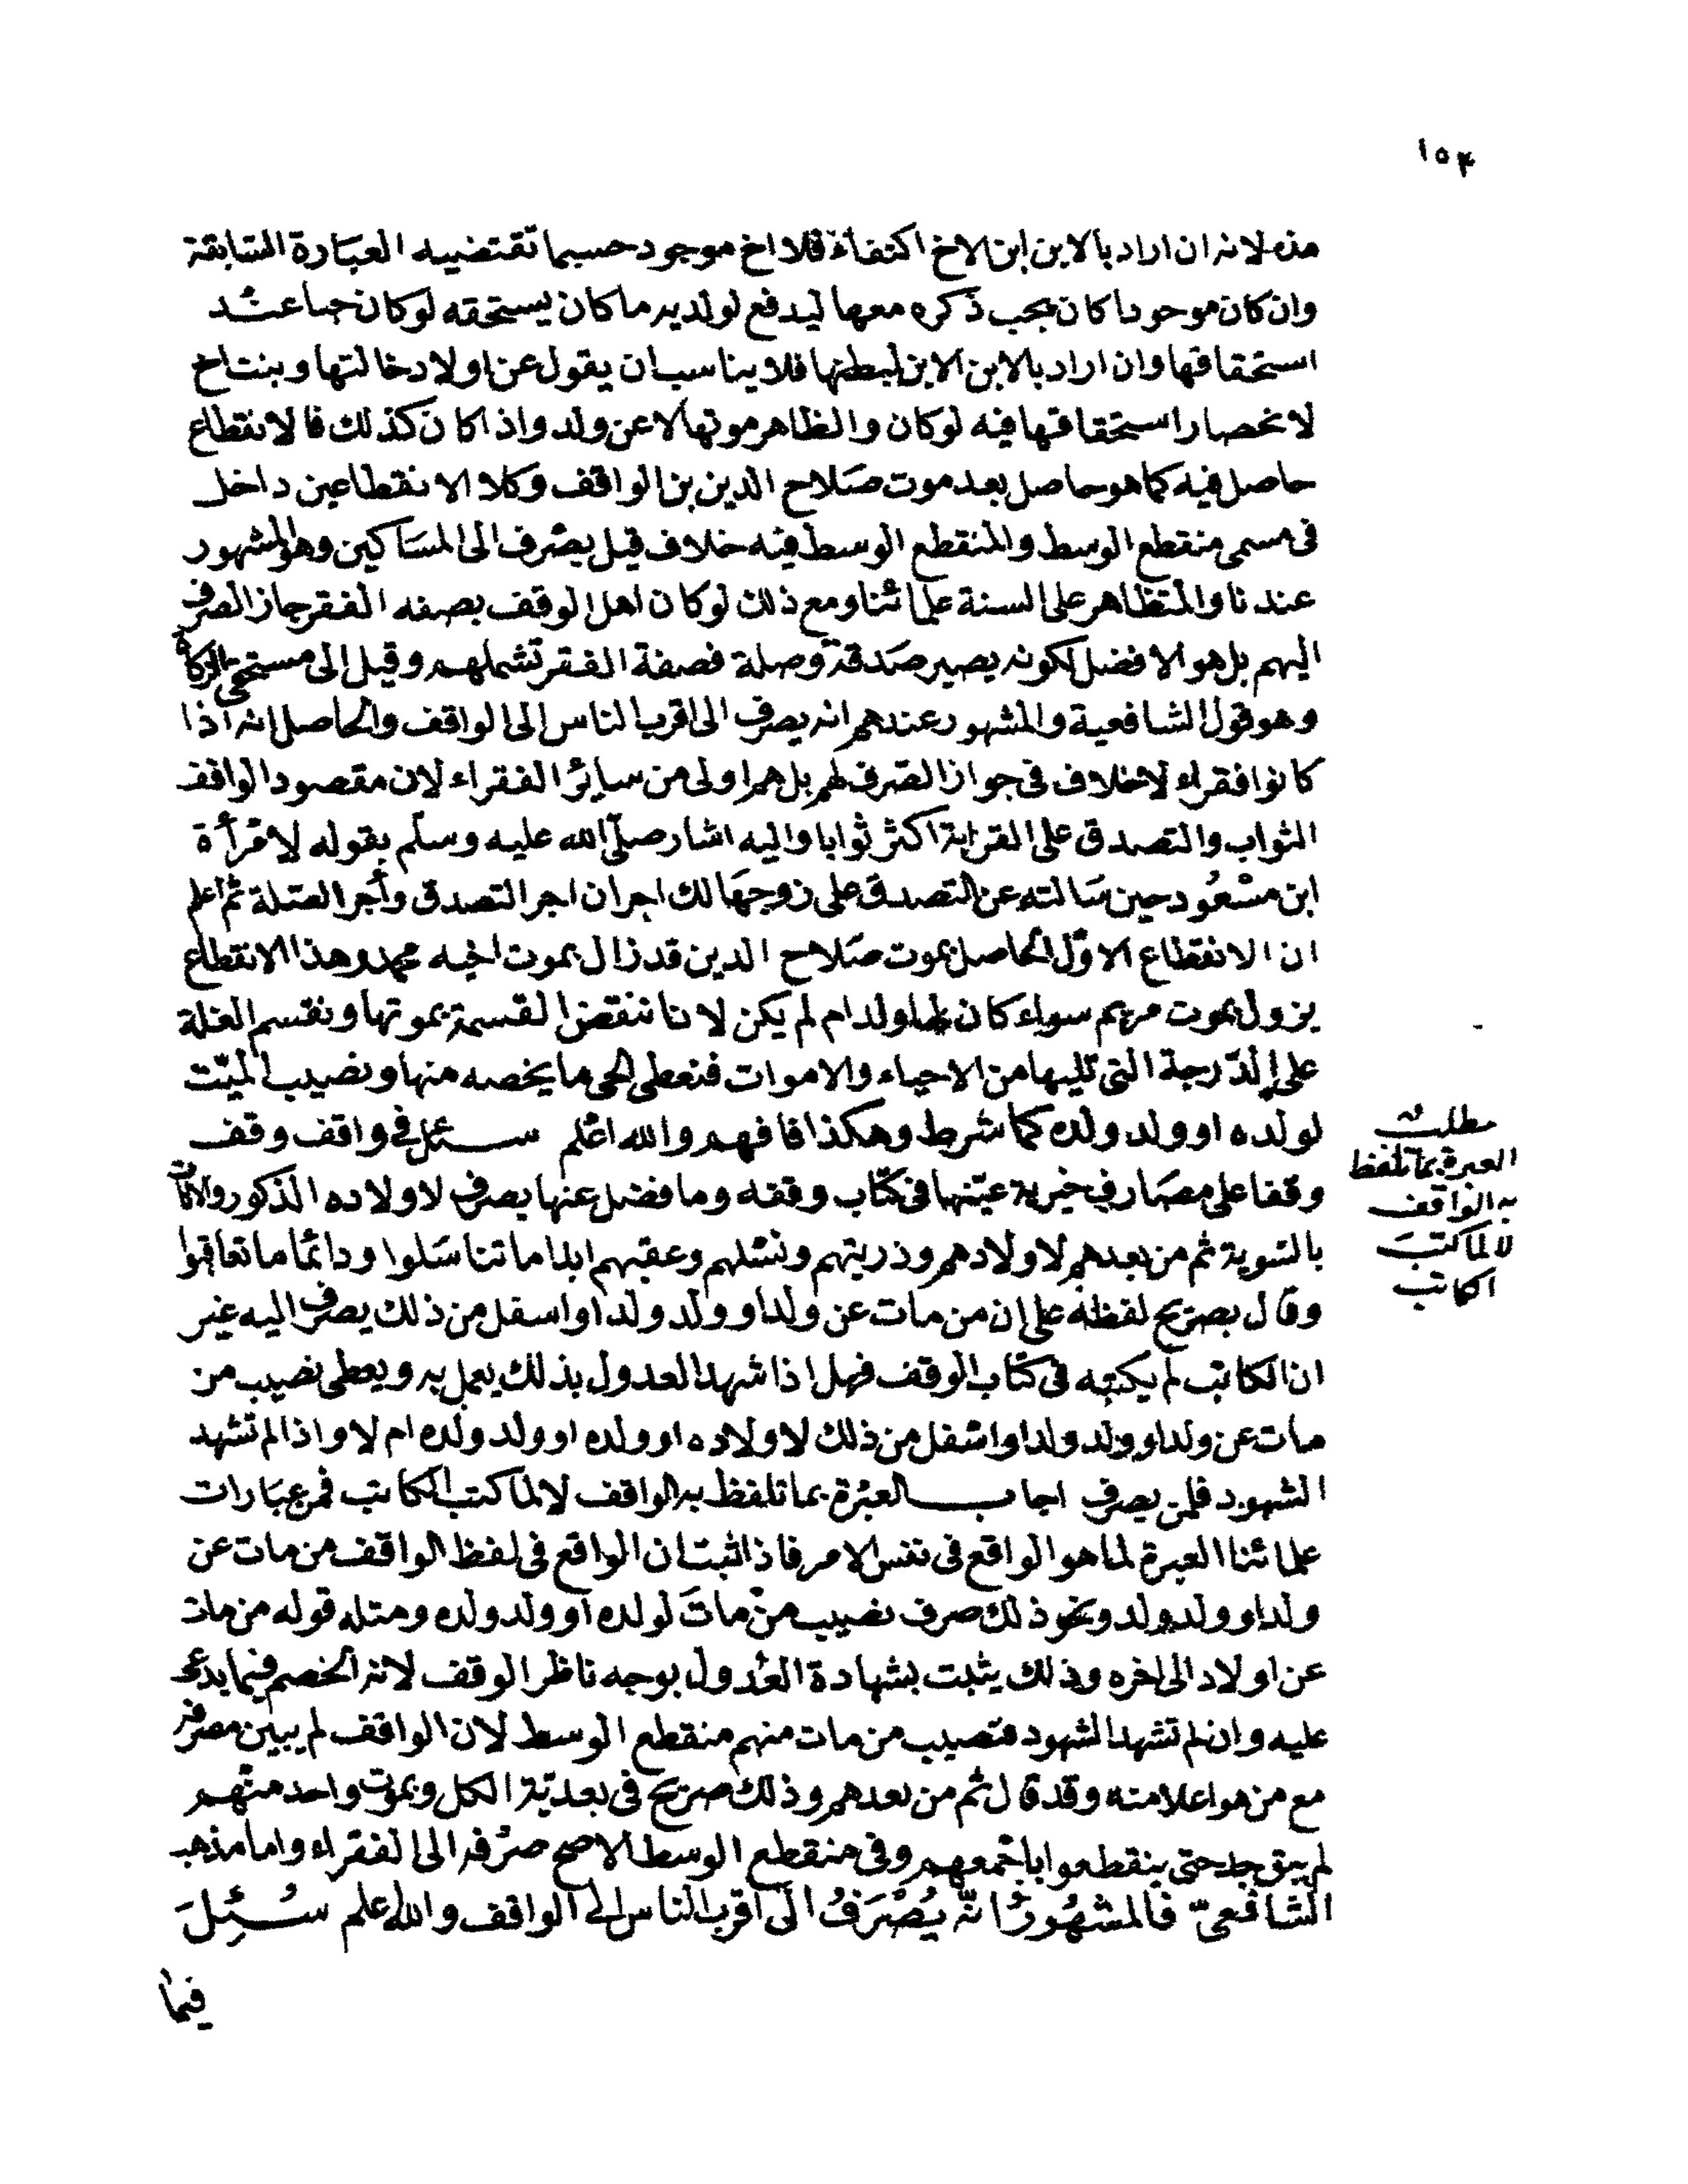 ١٥٤
هذه لانه ان اراد بالابن ابن الاخ اكتفاء فلا اخ موجود حسبما تقتضيه العبارة السابقة
وان كان موجودا كان يجب ذكره معها ليدفع لولديه ما كان يستحقه لو كان حيا عند
استحقاقها وان اراد بالابن الابن لبطنها فلا يناسب ان يقول عن اولاد خالتها وبنت اخ
لانحصار استحقاقها فيه لو كان والظاهر موتها لا عن ولد واذا كان كذلك فالانقطاع
حاصل فيه كما هو حاصل بعد موت صلاح الدين بن الواقف وكلا الانقطاعين داخل
فى مسمى منقطع الوسط والمنقطع الوسط فيه خلاف قيل يصرف الى المساكين وهو المشهور
عندنا والمتظاهر على السنة علمائنا ومع ذلك لو كان اهل الوقف بصفه الفقر جاز الصرف
اليهم بل هو الافضل لكونه يصير صدقة وصلة فصفة الفقر تشملهم وقيل الى مستحقى الزكاة
وهو قول الشافعية والمشهور عندهم انه يصرف الى اقرب الناس الى الواقف والحاصل انه اذا
كانوا فقراء لا خلاف فى جواز الصرف لهم بل هم اولى من سائر الفقراء لان مقصود الواقف
الثواب والتصدق على القرابة اكثر ثوابا واليه اشار صلى الله عليه وسلم بقوله لامرأة
ابن مسعود حين سالته عن التصدق على زوجها لك اجران اجر التصدق وأجر الصلة ثم اعلم
ان الانقطاع الاول الحاصل بموت صلاح الدين قد زال بموت اخيه محمد وهذا الانقطاع
يزول بموت مريم سواء كان لها ولد ام لم يكن لاننا ننقض القسمة بموتها ونقسم الغلة
على الدرجة التى تليها من الاحياء والاموات فنعطى الحى ما يخصه منها ونصيب الميت
لولده او ولد ولده كما شرط وهكذا فافهم والله اعلم سئل فى واقف وقف
وقفا على مصارف خيرية عينها فى كتاب وقفه وما فضل عنها يصرف لاولاده الذكور والاناث
بالسوية ثم من بعدهم لاولادهم وذريتهم ونسلهم وعقبهم ابدا ما تناسلوا ودائما ما تعاقبوا
وقال بصريح لفظه على ان من مات عن ولد او ولد ولد او اسفل من ذلك يصرف اليه غير
ان الكاتب لم يكتبه فى كتاب الوقف فهل اذا شهد العدول بذلك يعمل به ويعطى نصيب من
مات عن ولد او ولد ولد او اسفل من ذلك لاولاده او ولده او ولد ولده ام لا واذا لم تشهد
الشهود فلمن يصرف اجاب العبرة بما تلفظ به الواقف لا لما كتب الكاتب فمن عبارات
علمائنا العبرة لما هو الواقع فى نفس الامر فاذا ثبت ان الواقع فى لفظ الواقف من مات عن
ولد او ولد ولد ونحو ذلك صرف نصيب من مات لولده أو ولد ولده ومثله قوله من مات
عن اولاد الى اخره وذلك يثبت بشهادة العدول بوجه ناظر الوقف لانه الخصم فيما يدعى
عليه وان لم تشهد الشهود فنصيب من مات منهم منقطع الوسط لان الواقف لم يبين مصرفه
مع من هو اعلا منه وقد قال ثم من بعدهم وذلك صريح فى بعدية الكل وبموت واحد منهم
لم يبق حتى ينقطعوا باجمعهم وفى منقطع الوسط الاصح صرفه الى الفقراء واما مذهب
الشافعى فالمشهور انه يصرف الى اقرب الناس الى الواقف والله اعلم سئل
فيما
مطلب
العبرة بما تلفظ
به الواقف
لا لما كتب
الكاتب